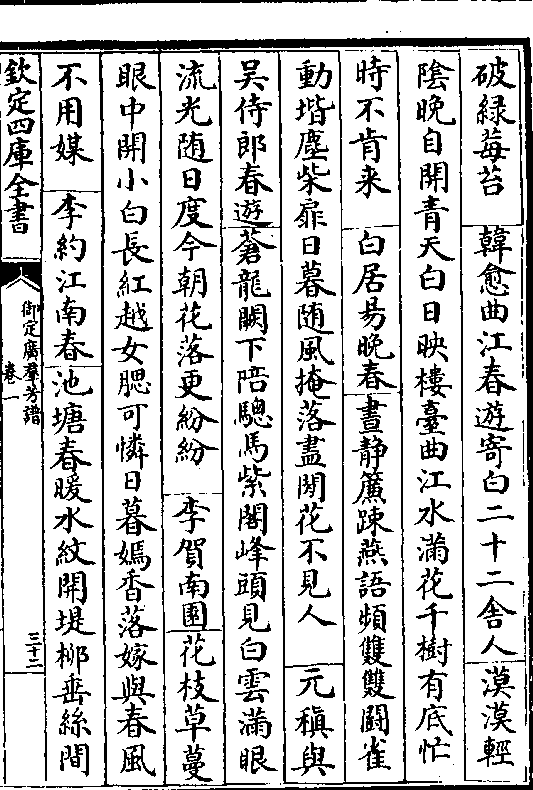 破緑莓苔　韓愈曲江春遊寄白二十二舍人　漠漠輕
陰晚自開青天白日映樓臺曲江水滿花千樹有底忙
時不肯来　白居易晚春　晝静簾踈燕語頻雙雙鬬雀
動堦塵柴扉日暮随風掩落盡閑花不見人　元稹與
吳侍郎春遊　蒼龍闕下陪驄馬紫閣峰頭見白雲滿眼
流光随日度今朝花落更紛紛　李賀南園　花枝草蔓
眼中開小白長紅越女腮可憐日暮嫣香落嫁與春風
不用媒　李約江南春　池塘春暖水紋開堤栁垂絲間
欽定四庫全書
御定廣羣芳譜
卷一
三十二